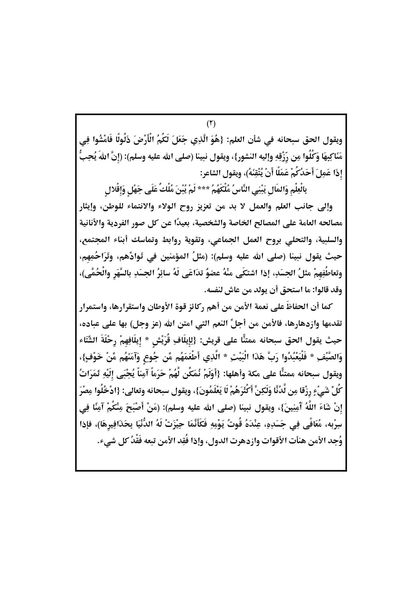 (٢)
ويقول الحق سبحانه في شأن العلم: {هُوَ الَّذِي جَعَلَ لَكُمُ الْأَرْضَ ذَلُولًا فَامْشُوا فِي
مَنَاكِبِهَا وَكُلُوا مِن رِّزْقِهِ وإليه النشور}، ويقول نبينا (صلى الله عليه وسلم): (إنَّ اللهَ يُحِبُّ
إِذَا عَمِلَ أَحَدُكُمْ عَمَلًا أَنْ يُتْقِنَهُ)، ويقول الشاعر:
بِالْعِلْمِ وَالمَالِ يَبْنِي النَّاسُ مُلْكَهُمُ *** لَمْ يُبْنَ مُلْكٌ عَلَى جَهْلٍ وَإِقْلالِ
وإلى جانب العلم والعمل لا بد من تعزيز روح الولاء والانتماء للوطن، وإيثار
مصالحه العامة على المصالح الخاصة والشخصية، بعيدًا عن كل صور الفردية والأنانية
والسلبية، والتحلي بروح العمل الجماعي، وتقوية روابط وتماسك أبناء المجتمع،
حيث يقول نبينا (صلى الله عليه وسلم): (مثلُ المؤمنين في توادِّهم، وتَرَاحُمِهِم،
وتعاطُفِهِمْ مثلُ الجسَدِ، إذا اشتكَى منْهُ عضوٌ تدَاعَى لَهُ سائِرُ الجسَدِ بالسَّهَرِ والْحُمَّى)،
وقد قالوا: ما استحق أن يولد من عاش لنفسه.
كما أن الحفاظَ على نعمة الأمن من أهم ركائز قوة الأوطان واستقرارها، واستمرار
تقدمها وازدهارها، فالأمن من أجلِّ النعم التي امتن الله (عز وجل) بها على عباده،
حيث يقول الحق سبحانه ممتنًّا على قريش: {لِإِيلَافِ قُرَيْشٍ * إِيلَافِهِمْ رِحْلَةَ الشِّتَاء
وَالصَّيْفِ * فَلْيَعْبُدُوا رَبَّ هَذَا الْبَيْتِ * الَّذِي أَطْعَمَهُم مِّن جُوعٍ وَآمَنَهُم مِّنْ خَوْفٍ}،
ويقول سبحانه ممتنًّا على مكة وأهلها: {أَوَلَمْ نُمَكِّن لَّهُمْ حَرَماً آمِناً يُجْبَى إِلَيْهِ ثَمَرَاتُ
كُلِّ شَيْءٍ رِزْقا مِن لَّدُنَّا وَلَكِنَّ أَكْثَرَهُمْ لَا يَعْلَمُونَ}، ويقول سبحانه وتعالى: {ادْخُلُوا مِصْرَ
إِنْ شَاءَ اللَّهُ آَمِنِينَ}، ويقول نبينا (صلى الله عليه وسلم): (مَنْ أَصْبَحَ مِنْكُمْ آمِنًا فِي
سِرْبِهِ، مُعَافًى فِي جَسَدِهِ، عِنْدَهُ قُوتُ يَوْمِهِ فَكَأَنَّمَا حِيزَتْ لَهُ الدُّنْيَا بِحَذَافِيرِهَا)، فإذا
وُجد الأمن هنأت الأقوات وازدهرت الدول، وإذا فُقد الأمن تبعه فَقْدُ كل شيء.